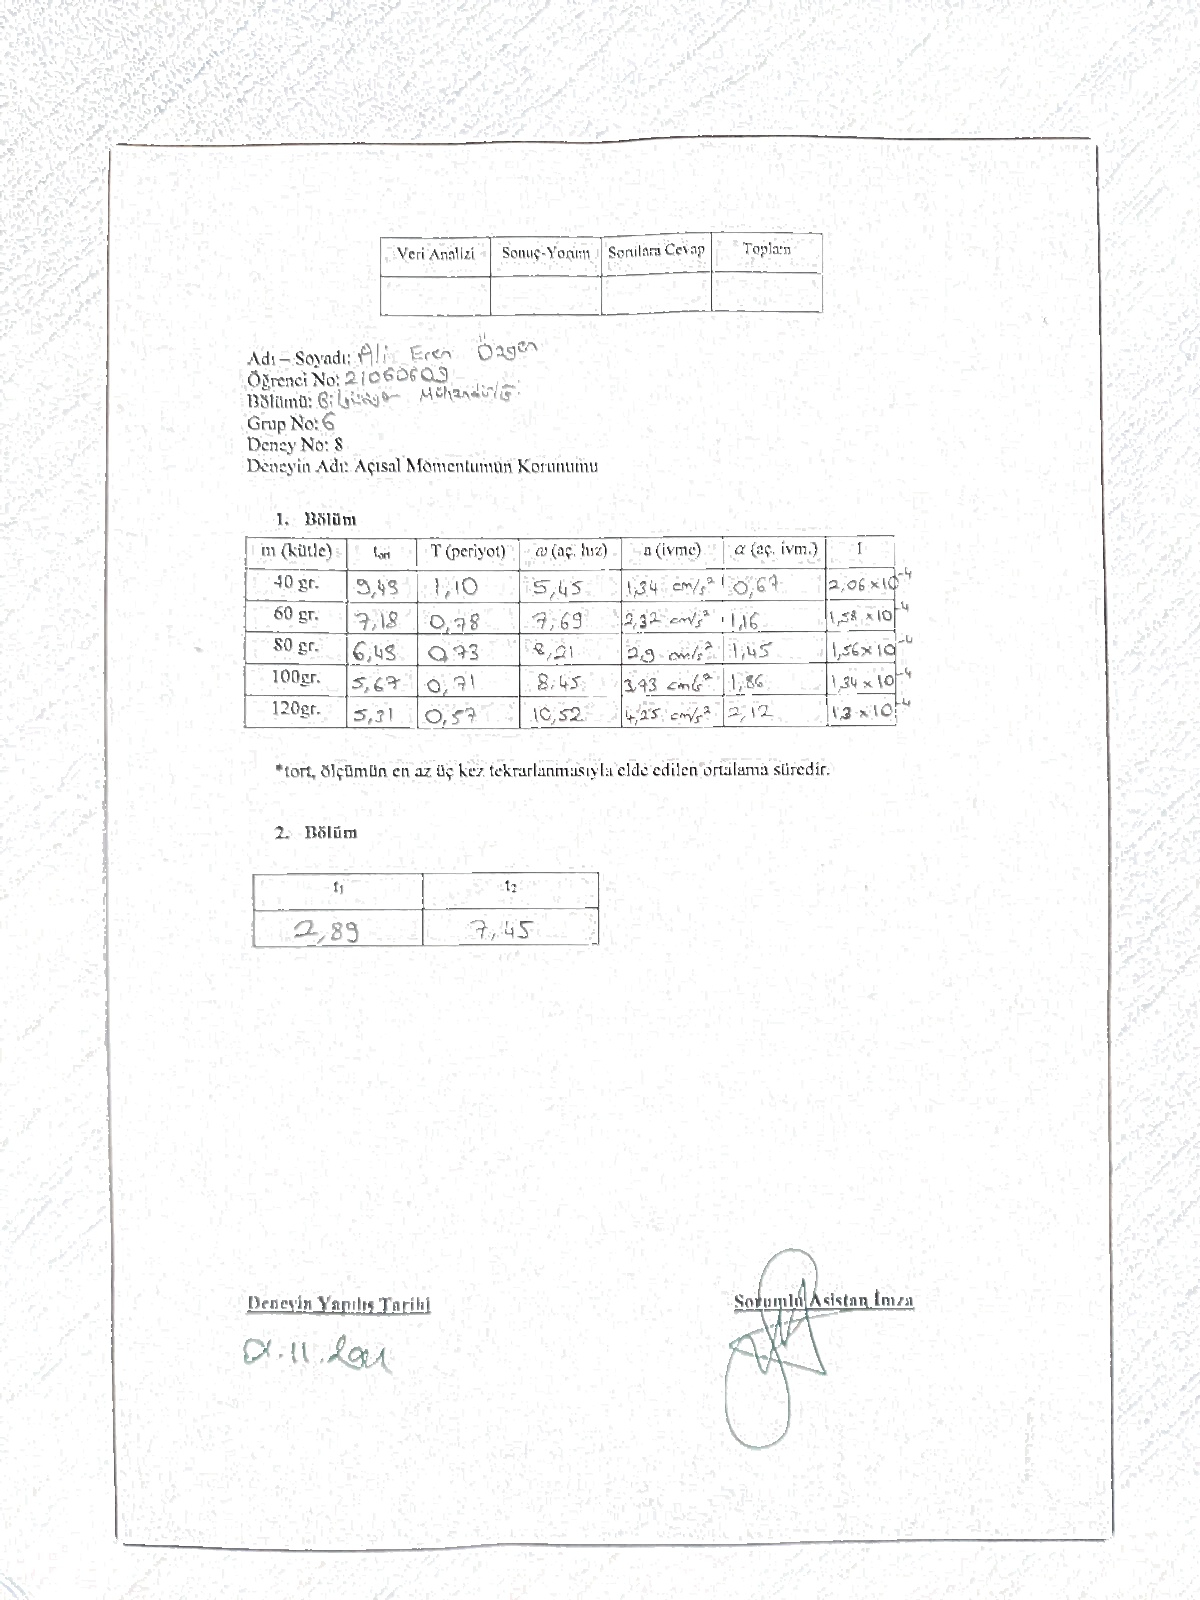 Veri Analizi Sonuç-Yorum Sorulara Cevap Toplam
Adı – Soyadı: Ali Eren Özgen
Öğrenci No: 21060609
Bölümü: Bilgisayar Mühendisliği
Grup No: 6
Deney No: 8
Deneyin Adı: Açısal Momentumun Korunumu
1. Bölüm
m (kütle) tort T (periyot) ω (aç. hız) a (ivme) α (aç. ivm.) I
40 gr. 9,49 1,10 5,45 1,34 cm/s² 0,67 2,06×10⁻⁴
60 gr. 7,18 0,78 7,69 2,32 cm/s² 1,16 1,58×10⁻⁴
80 gr. 6,49 0,73 8,21 2,9 cm/s² 1,45 1,56×10⁻⁴
100gr. 5,67 0,71 8,45 3,73 cm/s² 1,86 1,34×10⁻⁴
120gr. 5,31 0,57 10,52 4,25 cm/s² 2,12 1,3×10⁻⁴
*tort, ölçümün en az üç kez tekrarlanmasıyla elde edilen ortalama süredir.
2. Bölüm
t₁ t₂
2,89 7,45
Deneyin Yapılış Tarihi Sorumlu Asistan İmza